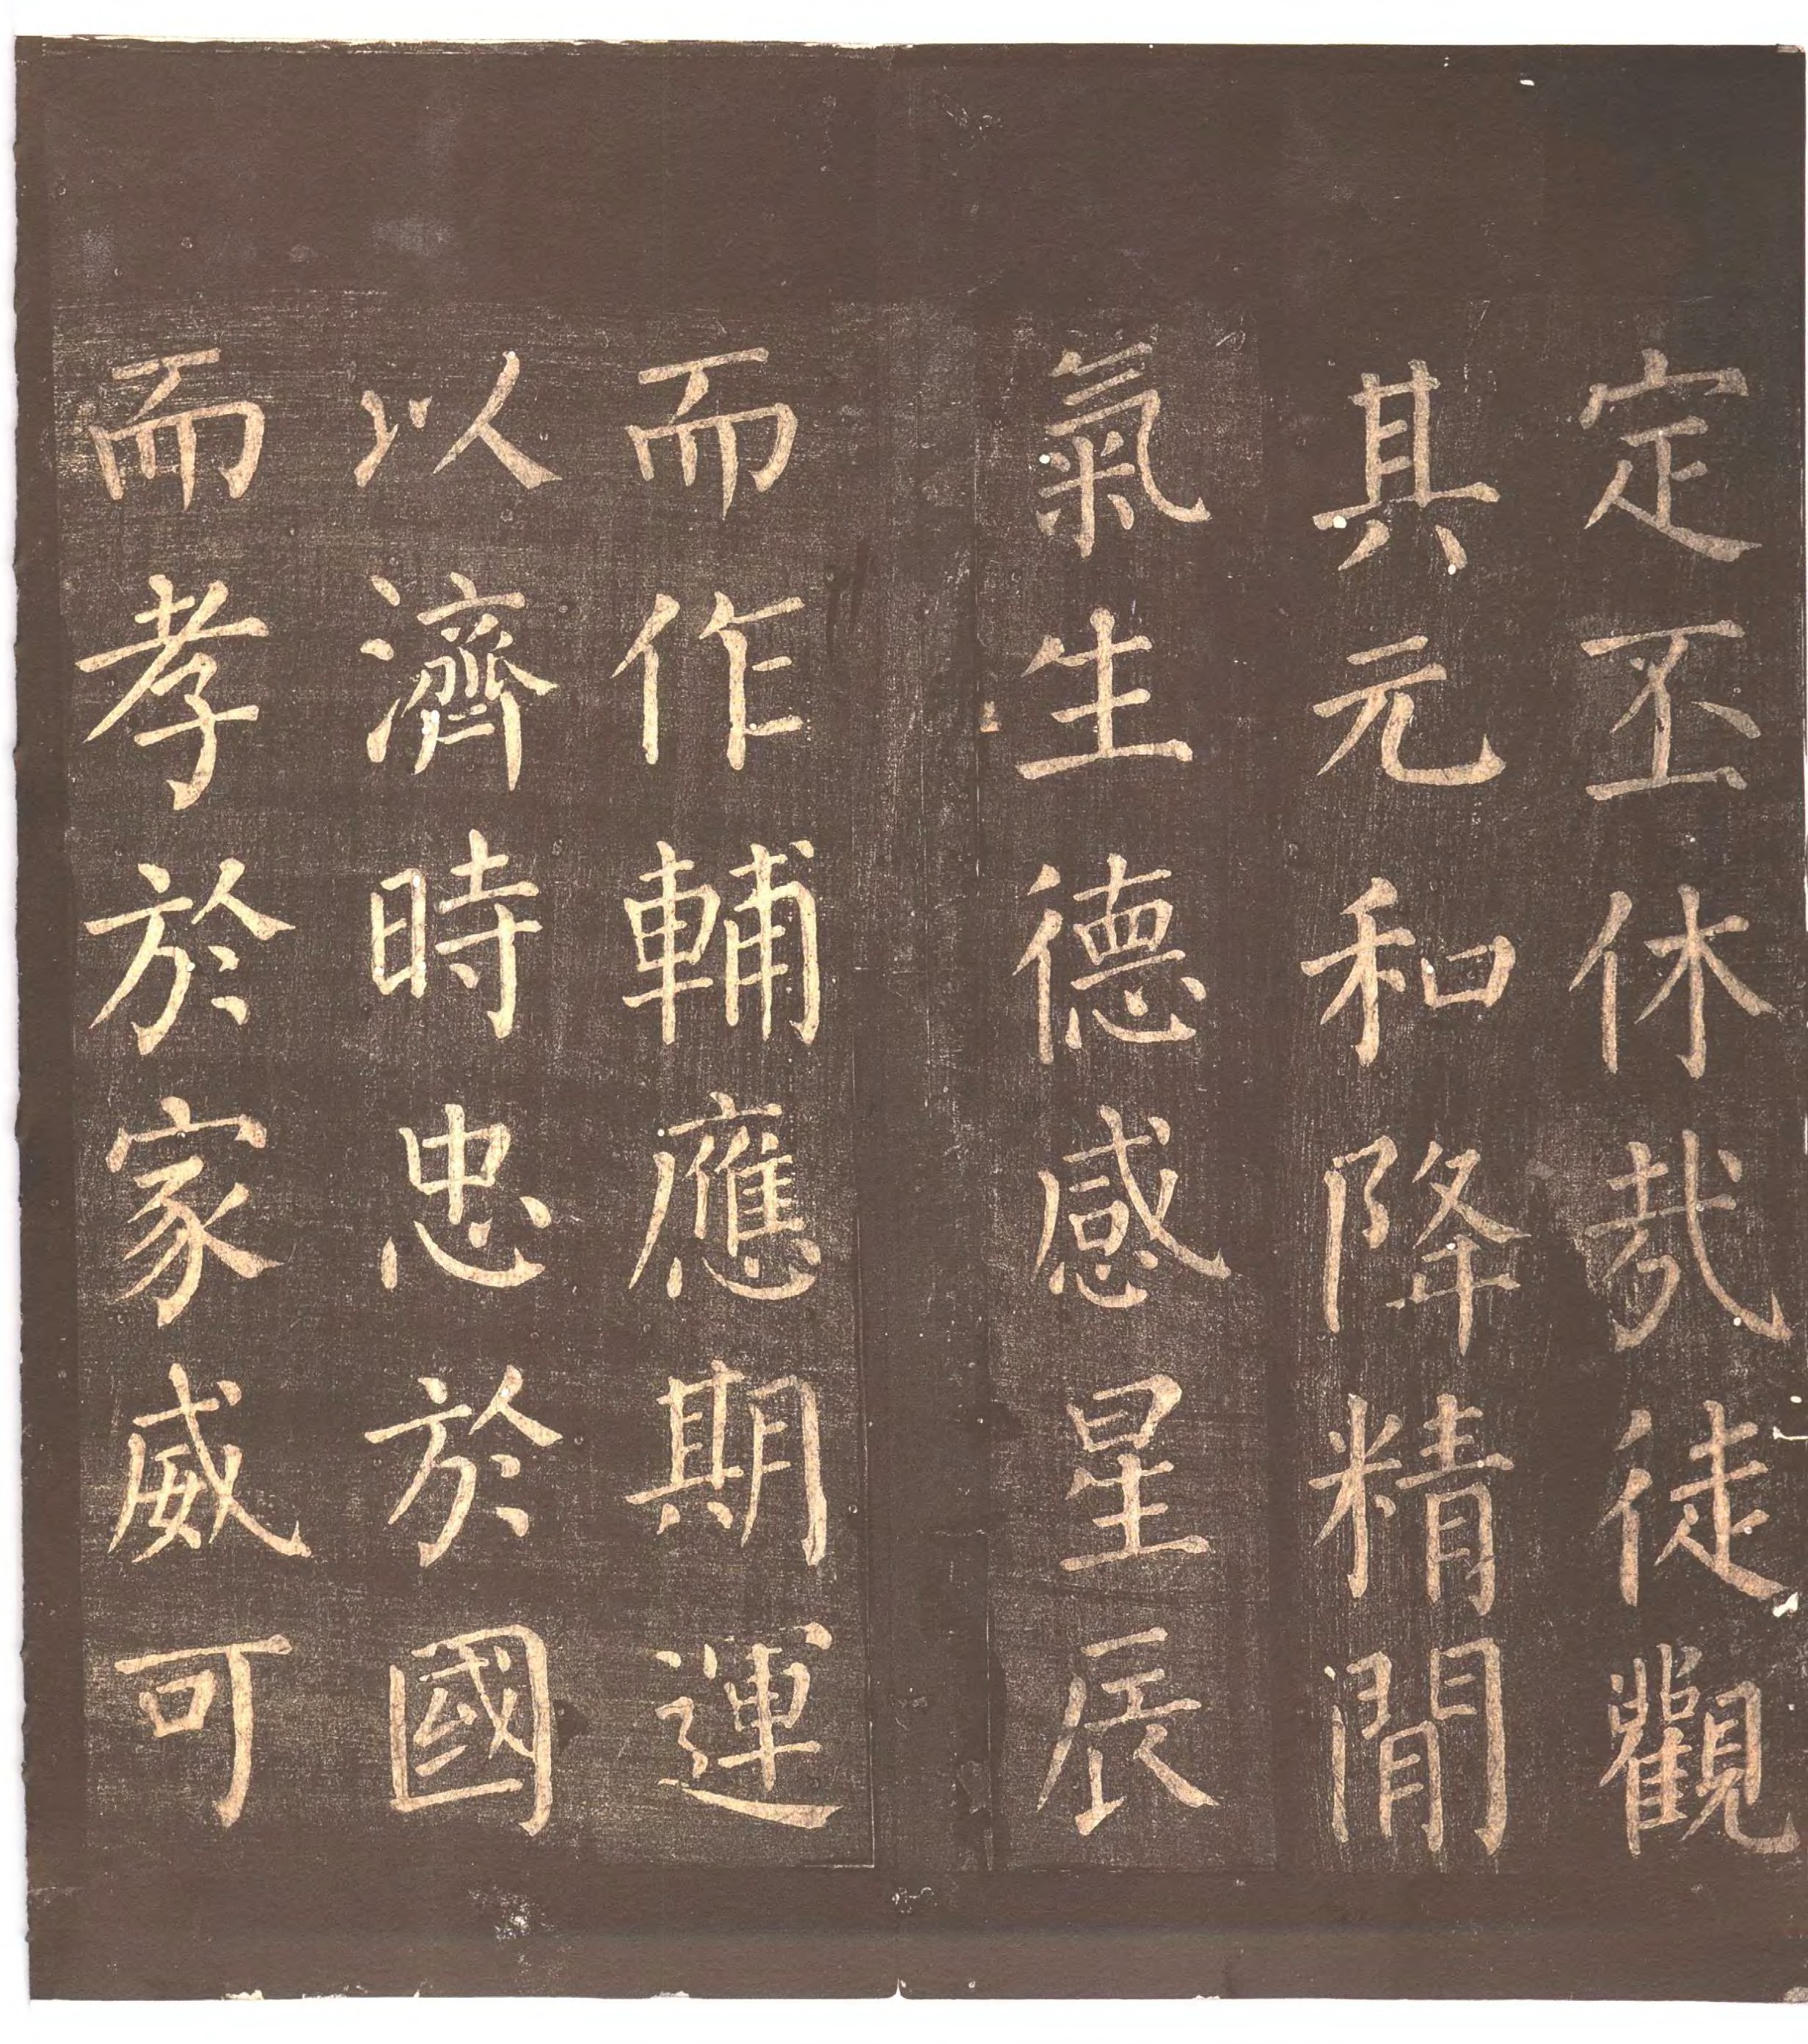 定丕休哉徒觀
其元和降精閒
氣生德感星辰
而作輔應期運
以濟時忠於國
而孝於家威可